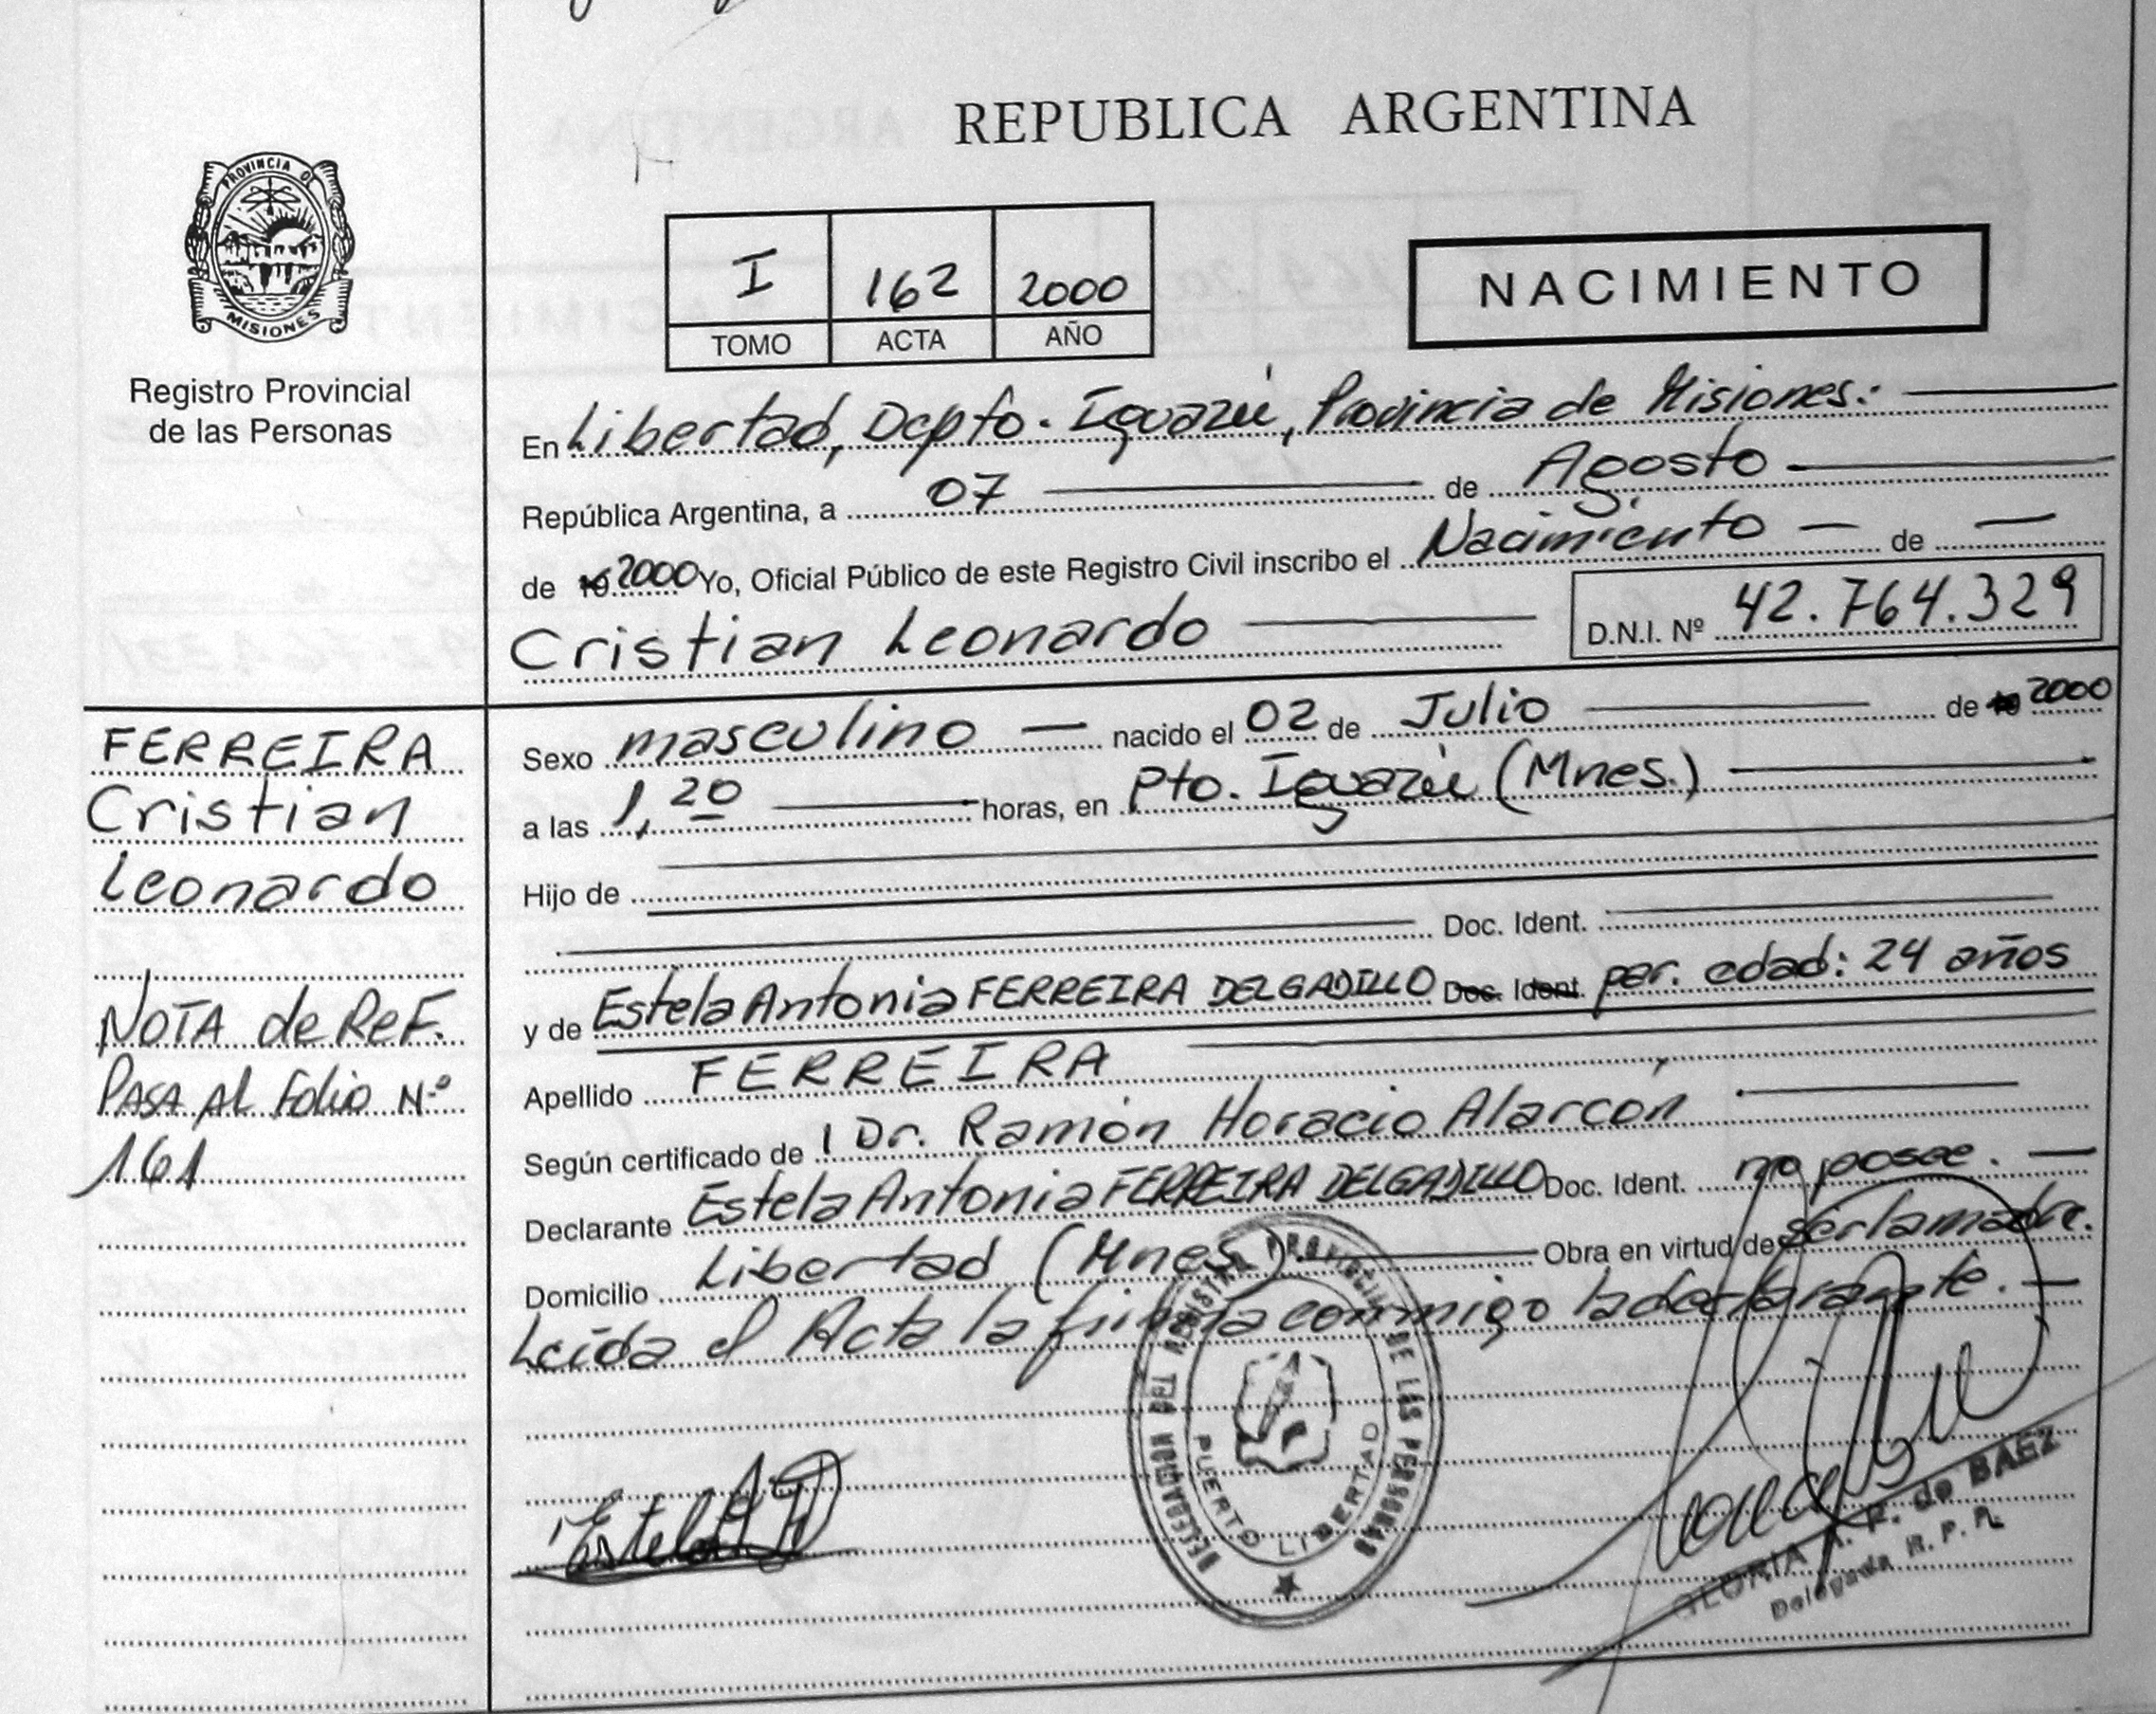 REPUBLICA ARGENTINA
PROVINCIA D
MISIONES
Registro Provincial
de las Personas
I 162 2000
TOMO ACTA AÑO
NACIMIENTO
En Libertad, Dcpto. Iguazú, Provincia de Misiones.
República Argentina, a 07 de Agosto
de 2000 Yo, Oficial Público de este Registro Civil inscribo el Nacimiento — de —
Cristian Leonardo
D.N.I. Nº 42.764.329
FERREIRA
Cristian
Leonardo
NOTA de ReF.
PASA Al Folio Nº
161
Sexo masculino — nacido el 02 de Julio de 2000
a las 1,20 horas, en Pto. Iguazú (Mnes.)
Hijo de
Doc. Ident.
y de Estela Antonia FERREIRA DELGADILLO Doc. Ident. par. edad: 24 años
Apellido FERREIRA
Según certificado de Dr. Ramón Horacio Alarcón
Declarante Estela Antonia FERREIRA DELGADILLO Doc. Ident. no posee. —
Domicilio Libertad (Mnes.) Obra en virtud de ser la madre.
Leída el Acta la firma conmigo la declarante. —
DELEGACION DEL REGISTRO PROVINCIAL DE LAS PERSONAS
PUERTO LIBERTAD
Estela
GLORIA A. F. de BAEZ
Delegada R. P. P.